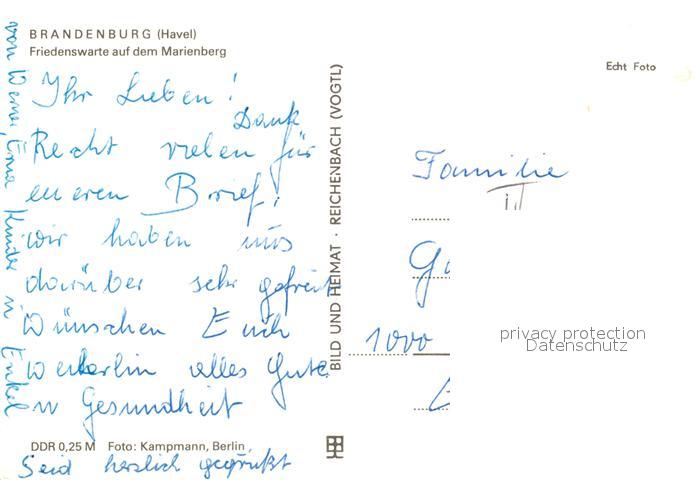 BRANDENBURG (Havel)
Friedenswarte auf dem Marienberg
Ihr Lieben!
Dank
Recht vielen für
eueren Brief!
wir haben uns
darüber sehr gefreut
Wünschen Euch
Weiterhin alles Gute
u Gesundheit
DDR 0,25 M Foto: Kampmann, Berlin
Seid herzlich gegrüßt
von Werner, Erna Kinder u Enkel
BILD UND HEIMAT · REICHENBACH (VOGTL)
Echt Foto
Familie
1000
privacy protection
Datenschutz